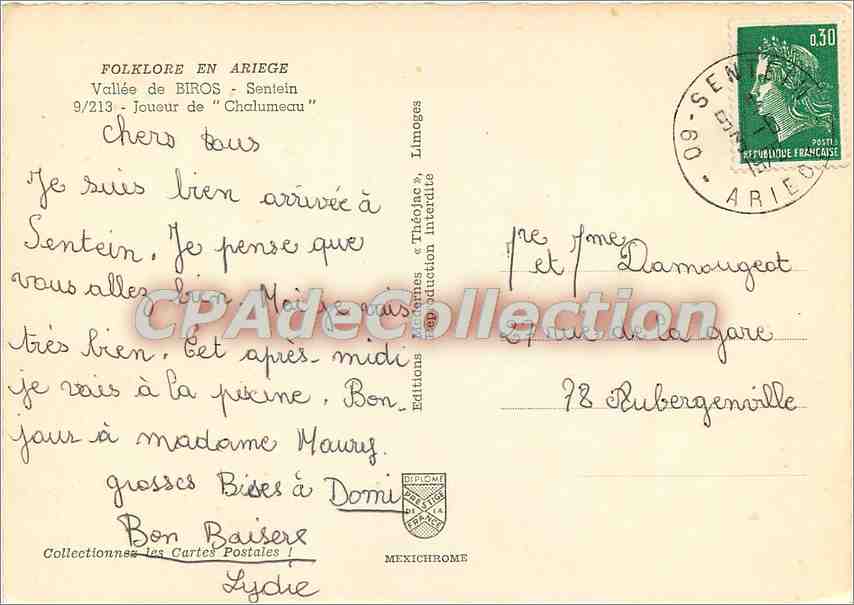 FOLKLORE EN ARIEGE
Vallée de BIROS - Sentein
9/213 - Joueur de "Chalumeau"
chers tous
Je suis bien arrivée à
Sentein. Je pense que
vous allez bien. Moi je vais
très bien. Cet après-midi
je vais à la piscine. Bon-
jour à madame Maury.
grosses Bises à Domi
Bon Baisers
Lydie
Collectionnez les Cartes Postales !
Editions Modernes « Théojac », Limoges
Reproduction interdite
DIPLOME
PRESTIGE
DE LA
FRANCE
MEXICHROME
0,30
POSTES
REPUBLIQUE FRANÇAISE
09 - SENTEIN
ARIEGE
Mre et Mme Damougeot
27 rue de la gare
78 Aubergenville
CPAdeCollection